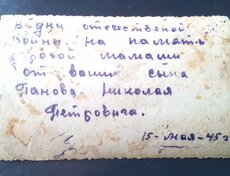 в дни отечественой
войны на память
дорогой мамаши
от вашего сына
Панова Николая
Петровича.
15-мая-45 г